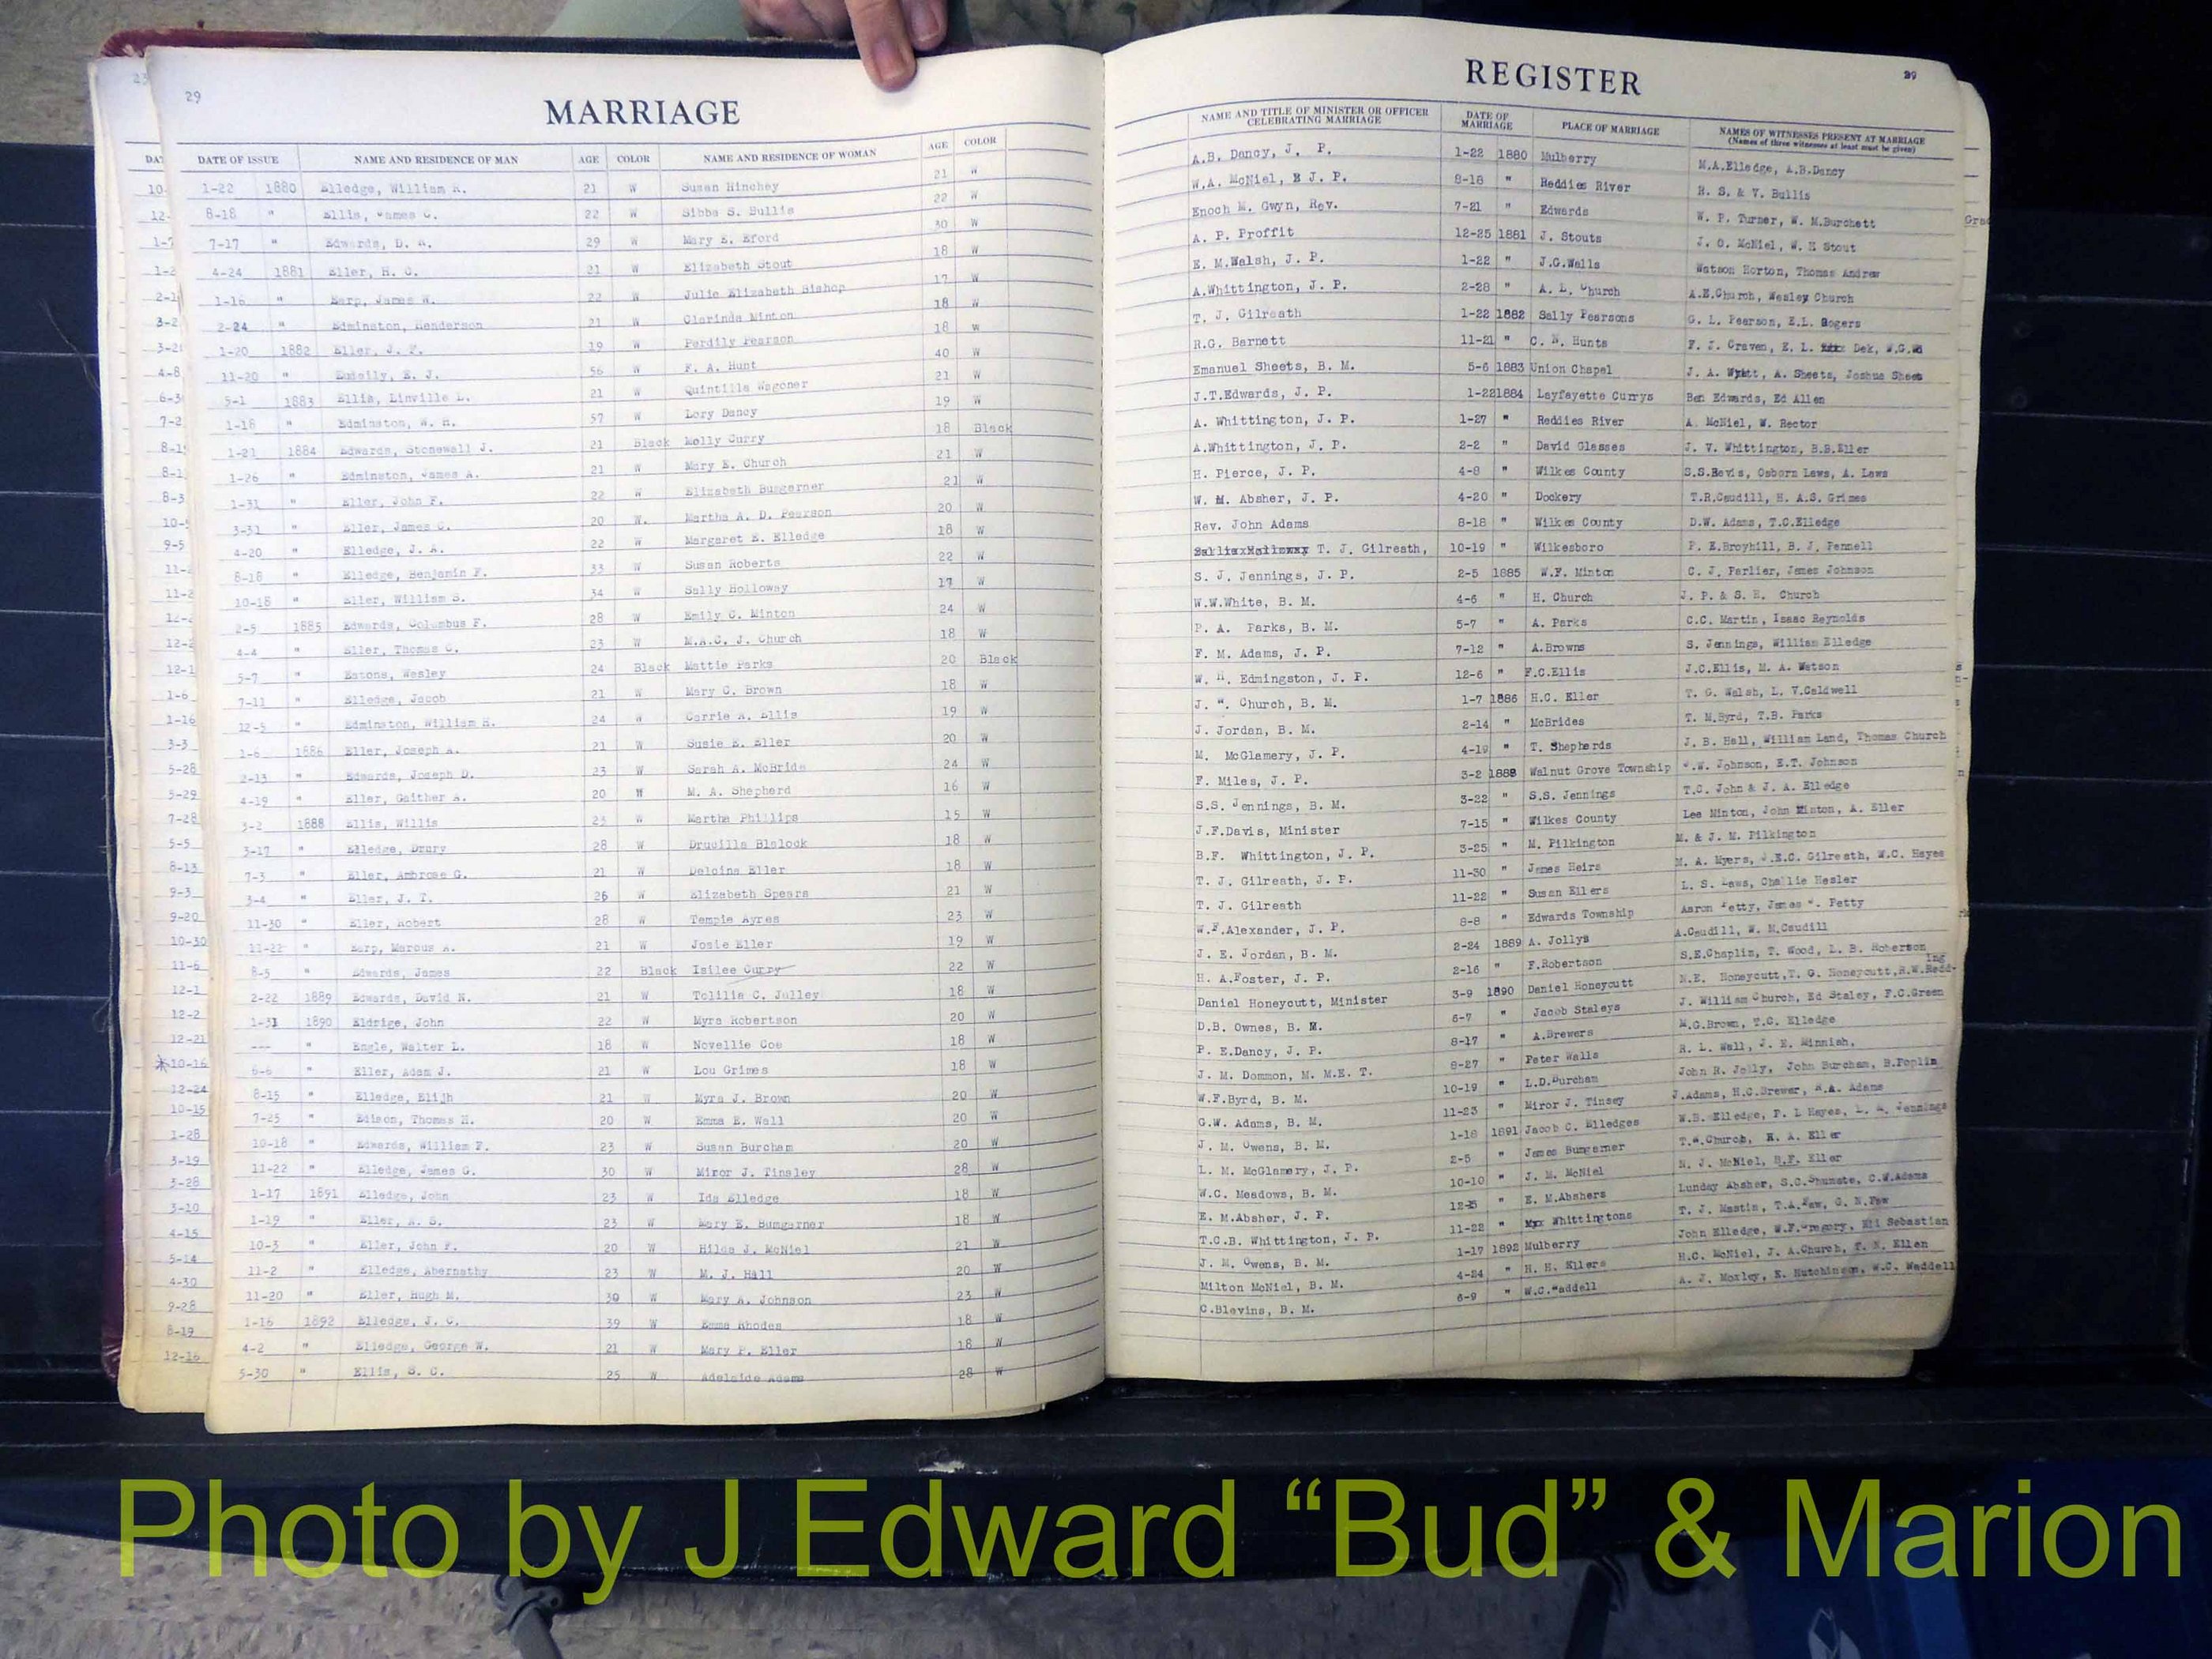 29
MARRIAGE
DATE OF ISSUE NAME AND RESIDENCE OF MAN AGE COLOR NAME AND RESIDENCE OF WOMAN AGE COLOR
1-22 1880 Elledge, William R. 21 W Susan Hinchey 21 W
8-18 " Ellis, James C. 22 W Sibba S. Bullis 22 W
7-17 " Edwards, D. R. 29 W Mary E. Eford 30 W
4-24 1881 Eller, H. C. 21 W Elizabeth Stout 18 W
1-16 " Earp, James W. 22 W Julie Elizabeth Bishop 17 W
2-24 " Edminston, Henderson 21 W Clarinda Minton 18 W
1-20 1882 Eller, J. F. 19 W Perdily Pearson 18 W
11-20 " E. J. 56 W F. A. Hunt 40 W
5-1 1883 Ellis, Linville L. 21 W Quintilla Wagoner 21 W
1-18 " Edminston, W. H. 57 W Lory Dancy 19 W
1-21 1884 Edwards, Stonewall J. 21 Black Molly Curry 18 Black
1-26 " Edminston, James A. 21 W Mary E. Church 21 W
1-31 " Eller, John F. 22 W Elizabeth Bumgarner 21 W
3-31 " Eller, James C. 20 W. Martha A. D. Pearson 20 W
4-20 " Elledge, J. A. 22 W Margaret E. Elledge 18 W
8-18 " Elledge, Benjamin F. 33 W Susan Roberts 22 W
10-18 " Eller, William S. 34 W Sally Holloway 17 W
2-5 1885 Edwards, Columbus F. 28 W Emily C. Minton 24 W
4-4 " Eller, Thomas C. 23 W M.A.C. J. Church 18 W
5-7 " Eatons, Wesley 24 Black Mattie Parks 20 Black
7-11 " Elledge, Jacob 21 W Mary C. Brown 18 W
12-5 " Edminston, William H. 24 W Carrie A. Ellis 19 W
1-6 1886 Eller, Joseph A. 21 W Susie E. Eller 20 W
2-13 " Edwards, Joseph D. 23 W Sarah A. McBride 24 W
4-19 " Eller, Gaither A. 20 W M. A. Shepherd 16 W
3-2 1888 Ellis, Willis 23 W Martha Phillips 15 W
3-17 " Elledge, Drury 28 W Drucilla Blalock 18 W
7-3 " Eller, Ambrose G. 21 W Delcina Eller 18 W
3-4 " Eller, J. T. 26 W Elizabeth Spears 21 W
11-30 " Eller, Robert 28 W Tempie Ayres 23 W
11-22 " Earp, Marcus A. 21 W Josie Eller 19 W
8-5 " Edwards, James 22 Black Isilee Curry 22 W
2-22 1889 Edwards, David N. 21 W Tolilia C. Jolley 18 W
1-31 1890 Eldrige, John 22 W Myra Robertson 20 W
--- " Engle, Walter L. 18 W Novellie Coe 18 W
6-6 " Eller, Adam J. 21 W Lou Grimes 18 W
8-15 " Elledge, Elijh 21 W Myra J. Brown 20 W
7-25 " Edison, Thomas H. 20 W Emma E. Wall 20 W
10-18 " Edwards, William F. 23 W Susan Burcham 20 W
11-22 " Elledge, James G. 30 W Miror J. Tinsley 28 W
1-17 1891 Elledge, John 23 W Ida Elledge 18 W
1-19 " Eller, A. S. 23 W Mary E. Bumgarner 18 W
10-3 " Eller, John F. 20 W Hilda J. McNiel 21 W
11-2 " Elledge, Abernathy 23 W M. J. Hall 20 W
11-20 " Eller, Hugh M. 30 W Mary A. Johnson 23 W
1-16 1892 Elledge, J. C. 39 W Emma Rhodes 18 W
4-2 " Elledge, George W. 21 W Mary P. Eller 18 W
5-30 " Ellis, S. C. 25 W Adelaide Adams 28 W
REGISTER
29
NAME AND TITLE OF MINISTER OR OFFICER CELEBRATING MARRIAGE DATE OF MARRIAGE PLACE OF MARRIAGE NAMES OF WITNESSES PRESENT AT MARRIAGE
(Names of three witnesses at least must be given)
A.B. Dancy, J. P. 1-22 1880 Mulberry M.A.Elledge, A.B.Dancy
W.A. McNiel, J. P. 8-18 " Reddies River R. S. & V. Bullis
Enoch M. Gwyn, Rev. 7-21 " Edwards W. P. Turner, W. M.Burchett
A. P. Proffit 12-25 1881 J. Stouts J. O. McNiel, W. H Stout
E. M.Walsh, J. P. 1-22 " J.G.Walls Watson Horton, Thomas Andrew
A.Whittington, J. P. 2-28 " A. L. Church A.E.Church, Wesley Church
T. J. Gilreath 1-22 1882 Sally Pearsons G. L. Pearson, E.L. Rogers
R.G. Barnett 11-21 " C. N. Hunts F. J. Craven, E. L. Dek,
Emanuel Sheets, B. M. 5-6 1883 Union Chapel J. A. Wyatt, A. Sheets, Joshua Sheets
J.T.Edwards, J. P. 1-22 1884 Layfayette Currys Ben Edwards, Ed Allen
A. Whittington, J. P. 1-27 " Reddies River A. McNiel, W. Rector
A.Whittington, J. P. 2-2 " David Glasses J. V. Whittington, B.B.Eller
H. Pierce, J. P. 4-8 " Wilkes County S.S.Revis, Osborn Laws, A. Laws
W. M. Absher, J. P. 4-20 " Dockery T.R.Caudill, H. A.S. Grimes
Rev. John Adams 8-18 " Wilkes County D.W. Adams, T.C.Elledge
T. J. Gilreath, 10-19 " Wilkesboro P. E.Broyhill, B. J. Fennell
S. J. Jennings, J. P. 2-5 1885 W.F. Minton C. J. Parlier, James Johnson
W.W.White, B. M. 4-6 " H. Church J. P. & S. E. Church
P. A. Parks, B. M. 5-7 " A. Parks C.C. Martin, Isaac Reynolds
F. M. Adams, J. P. 7-12 " A.Browns S. Jennings, William Elledge
W. H. Edmingston, J. P. 12-6 " F.C.Ellis J.C.Ellis, M. A. Watson
J. W. Church, B. M. 1-7 1886 H.C. Eller T. G. Walsh, L. V.Caldwell
J. Jordan, B. M. 2-14 " McBrides T. N.Byrd, T.B. Parks
M. McGlamery, J. P. 4-19 " T. Shepherds J. B. Hall, William Land, Thomas Church
F. Miles, J. P. 3-2 1888 Walnut Grove Township J.W. Johnson, E.T. Johnson
S.S. Jennings, B. M. 3-22 " S.S. Jennings T.C. John & J. A. Elledge
J.F.Davis, Minister 7-15 " Wilkes County Lee Minton, John Minton, A. Eller
B.F. Whittington, J. P. 3-25 " M. Pilkington M. & J. M. Pilkington
T. J. Gilreath, J. P. 11-30 " James Heirs M. A. Myers, J.E.C. Gilreath, W.C. Hayes
T. J. Gilreath 11-22 " Susan Ellers L. S. Laws, Challie Hesler
W.F.Alexander, J. P. 8-8 " Edwards Township Aaron Petty, James W. Petty
J. E. Jordan, B. M. 2-24 1889 A. Jollys A.Caudill, W. M.Caudill
H. A.Foster, J. P. 2-16 " F.Robertson S.E.Chaplin, T. Wood, L. B. Roberson
Daniel Honeycutt, Minister 3-9 1890 Daniel Honeycutt N.E. Honeycutt, T. G. Honeycutt, R.W.Redd-ing
D.B. Ownes, B. M. 6-7 " Jacob Staleys J. William Church, Ed Staley, F.C.Green
P. E.Dancy, J. P. 8-17 " A.Brewers M.G.Brown, T.C. Elledge
J. M. Dommon, M. M.E. T. 8-27 " Peter Walls R. L. Wall, J. E. Minnish,
W.F.Byrd, B. M. 10-19 " L.D.Burcham John R. Jolly, John Burcham, B.Poplin
G.W. Adams, B. M. 11-23 " Miror J. Tinsey J.Adams, H.C.Brewer, R.A. Adams
J. M. Owens, B. M. 1-18 1891 Jacob C. Elledges W.B. Elledge, P. L Hayes, L. A. Jennings
L. M. McGlamery, J. P. 2-5 " James Bumgarner T.A.Church, R. A. Eller
W.C. Meadows, B. M. 10-10 " J. M. McNiel N. J. McNiel, B.F. Eller
E. M.Absher, J. P. 12-5 " E. M.Abshers Lunday Absher, S.C.Shumate, C.W.Adams
T.C.B. Whittington, J. P. 11-22 " Whittingtons T. J. Mastin, T.A.Faw, G. N.Faw
J. M. Owens, B. M. 1-17 1892 Mulberry John Elledge, W.F.Gregory, Eli Sebastian
Milton McNiel, B. M. 4-24 " H. H. Ellers H.C. McNiel, J. A.Church, T. N. Ellen
C.Blevins, B. M. 6-9 " W.C.Waddell A. J. Moxley, E. Hutchinson, W.C. Waddell
Photo by J Edward “Bud” & Marion